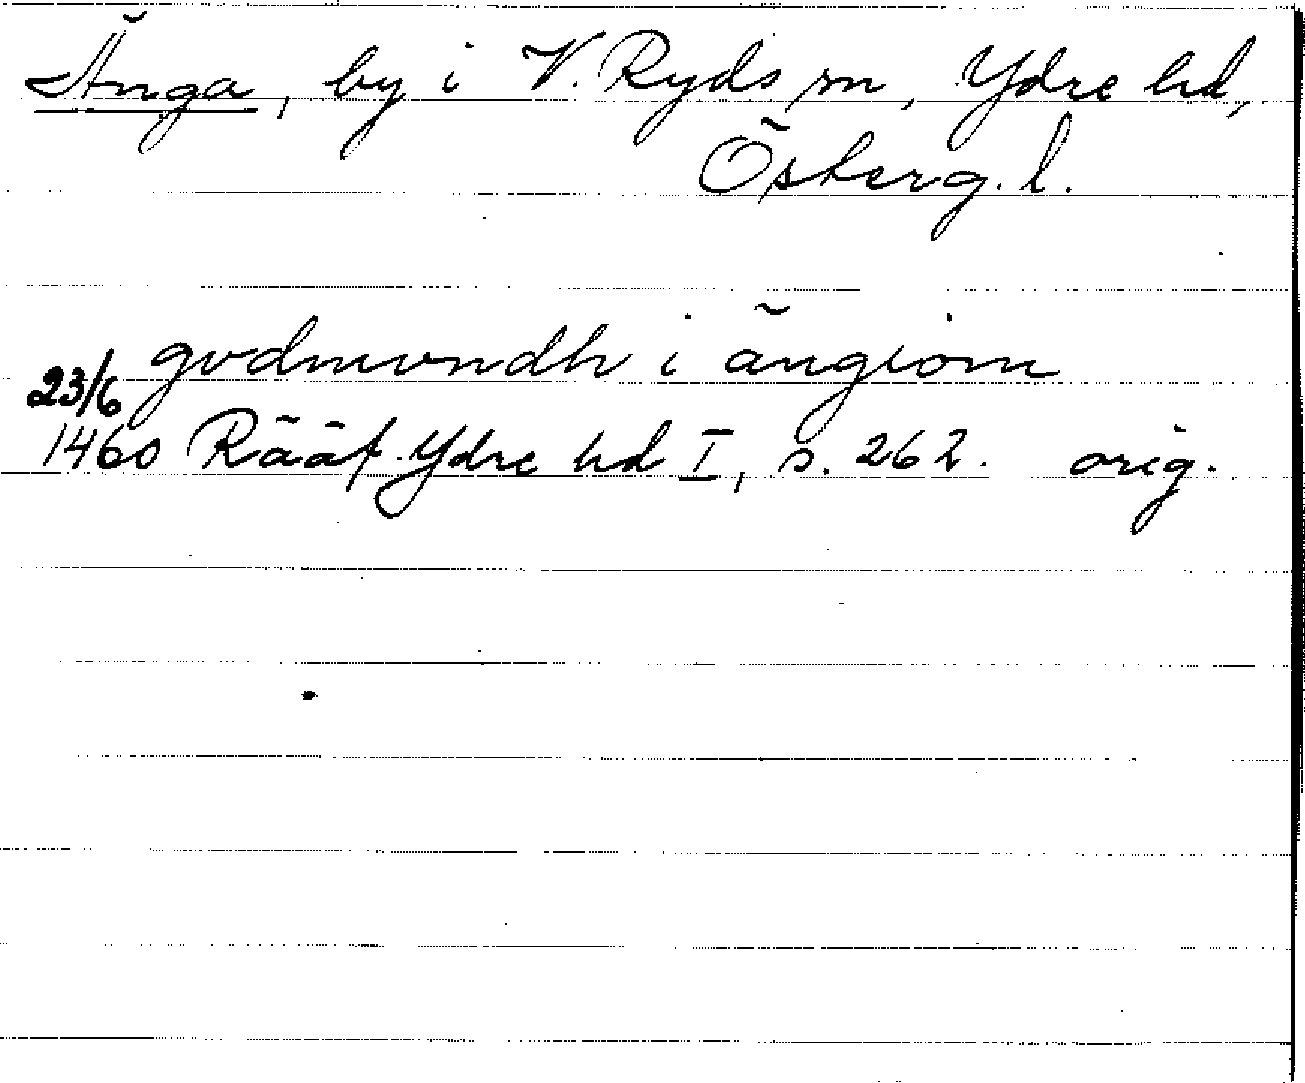 Änga, by i V. Ryds sn, Ydre hd,
Österg. l.
gvdmvndh i ängiom
23/6
1460 Rääf Ydre hd I, s. 262. orig.